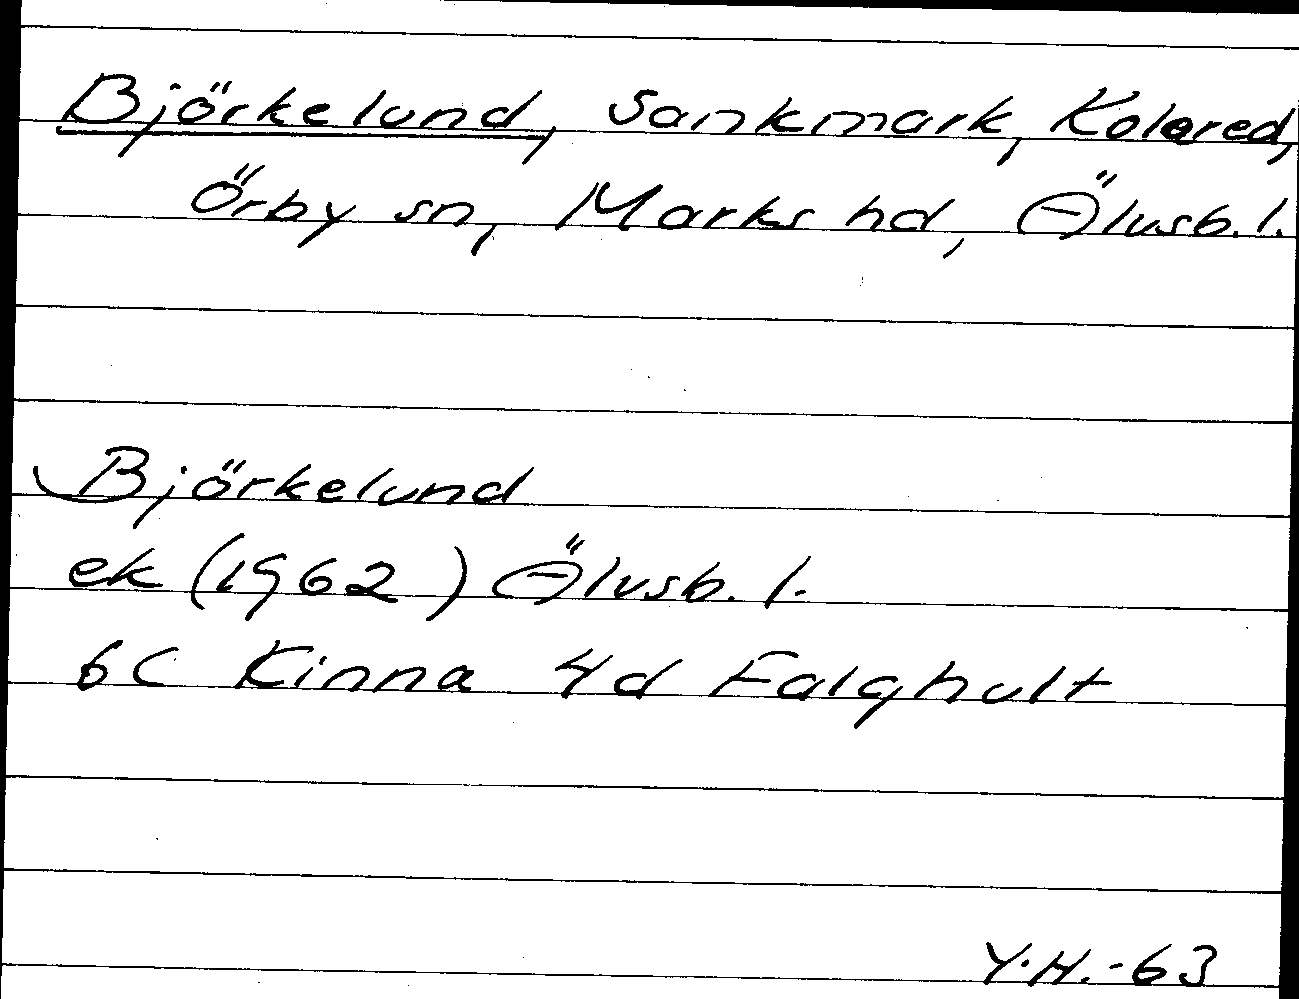 Björkelund, Sankmark, Kolared,
Örby sn, Marks hd, Älvsb. l.
Björkelund
ek (1962) Älvsb. l.
6C Kinna 4d Falghult
Y.H.-63